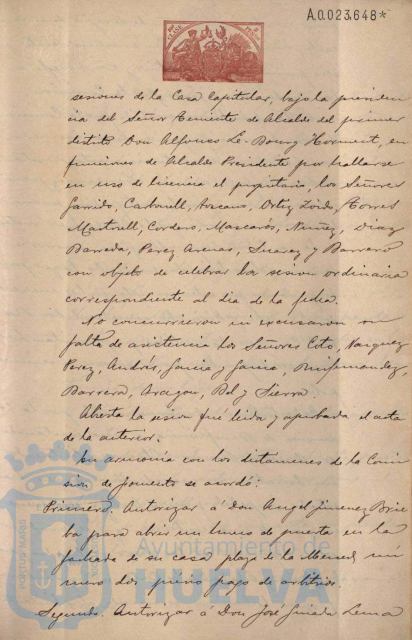 A.0.023,648*
sesiones de la Casa Capitular, bajo la presiden
cia del Señor Teniente de Alcalde del primer
distrito Don Alfonso Le-Bourg Horment, en
funciones de Alcalde Presidente por hallarse
en uso de licencia el propietario, los Señores
Garrido, Carbonell, Azcano, Ortiz, Torres
Martinell, Cordero, Mascarós, Nuñez, Diaz
Barreda, Perez Arenas, Suarez y Barrero
con objeto de celebrar la sesion ordinaria
correspondiente al dia de la fecha.
No concurrieron ni excusaron su
falta de asistencia los Señores Coto, Vazquez
Perez, Andrés, Garcia y Garcia,
Barrera, Aragon, Bel y Sierra.
Abierta la sesion fué leida y aprobada el acta
de la anterior.
En armonía con los dictamenes de la Comi
sion de fomento se acordó:
Primero. Autorizar á Don Angel Jimenez Brie
ba para abrir un hueco de puerta en la
fachada de su casa plaza de la Merced nú
mero dos previo pago de arbitrios.
Segundo. Autorizar á Don José Lema
PORTUS MARIS
Ayuntamiento de
HUELVA